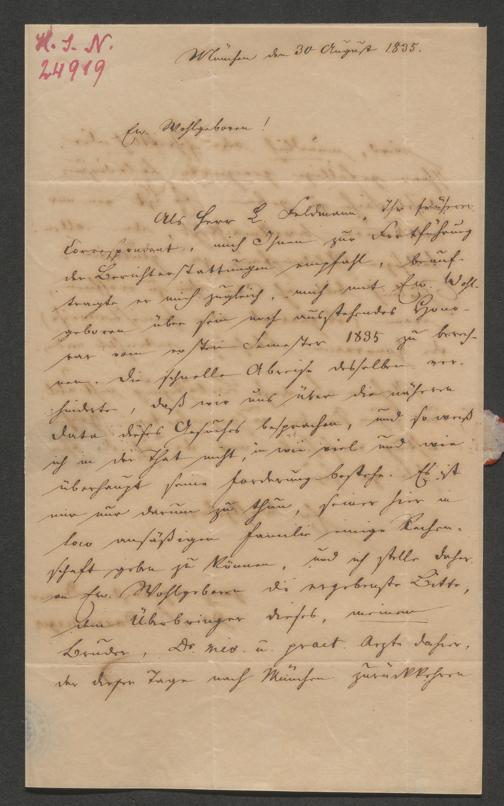 H. I. N.
24919
München den 30 August 1835.
Ew. Wohlgeboren!
Als Herr L. Feldmann, Ihr früherer
Correspondent, mich Ihnen zur Fortführung
der Berichterstattungen empfahl, beauf-
tragte er mich zugleich, mich mit Ew. Wohl-
geboren über sein noch ausstehendes Hono-
rar vom ersten Semester 1835 zu berech-
nen. Die schnelle Abreise desselben ver-
hinderte, daß wir uns über die näheren
Data dieses Gesuches besprachen, und so weiß
ich in der That nicht, in wie viel und wie
überhaupt seine Forderung bestehe. Es ist
mir nur darum zu thun, seiner hier in
loco ansäßigen Familie einige Rechen-
schaft geben zu können, und ich stelle daher
an Ew. Wohlgeboren die ergebenste Bitte,
dem Überbringer dieses, meinem
Bruder, Dr. med. u. pract. Arzte dahier,
der dieser Tage nach München zurückkehren